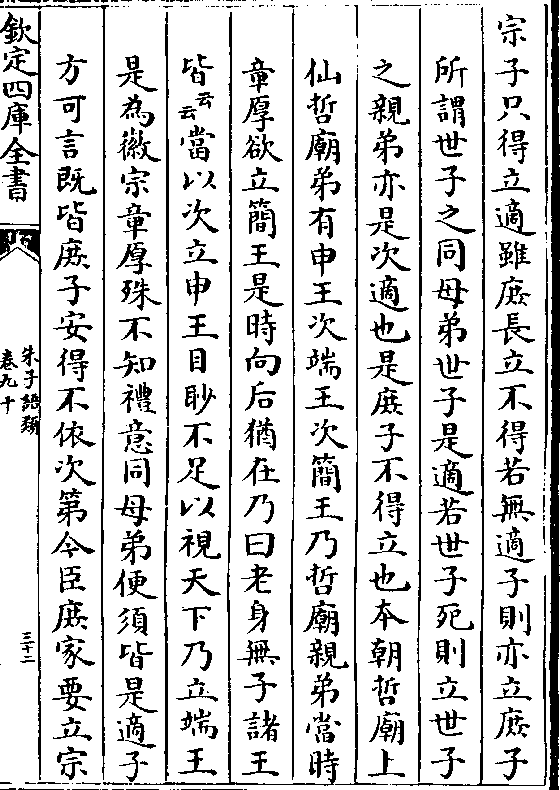 宗子只得立適雖庶長立不得若無適子則亦立庶子
所謂世子之同母弟世子是適若世子死則立世子
之親弟亦是次適也是庶子不得立也本朝哲廟上
仙哲廟弟有申王次端王次簡王乃哲廟親弟當時
章厚欲立簡王是時向后猶在乃曰老身無子諸王
皆云云當以次立申王目眇不足以視天下乃立端王
是為徽宗章厚殊不知禮意同母弟便須皆是適子
方可言既皆庶子安得不依次第今臣庶家要立宗
欽定四庫全書
朱子語類
卷九十
三十二